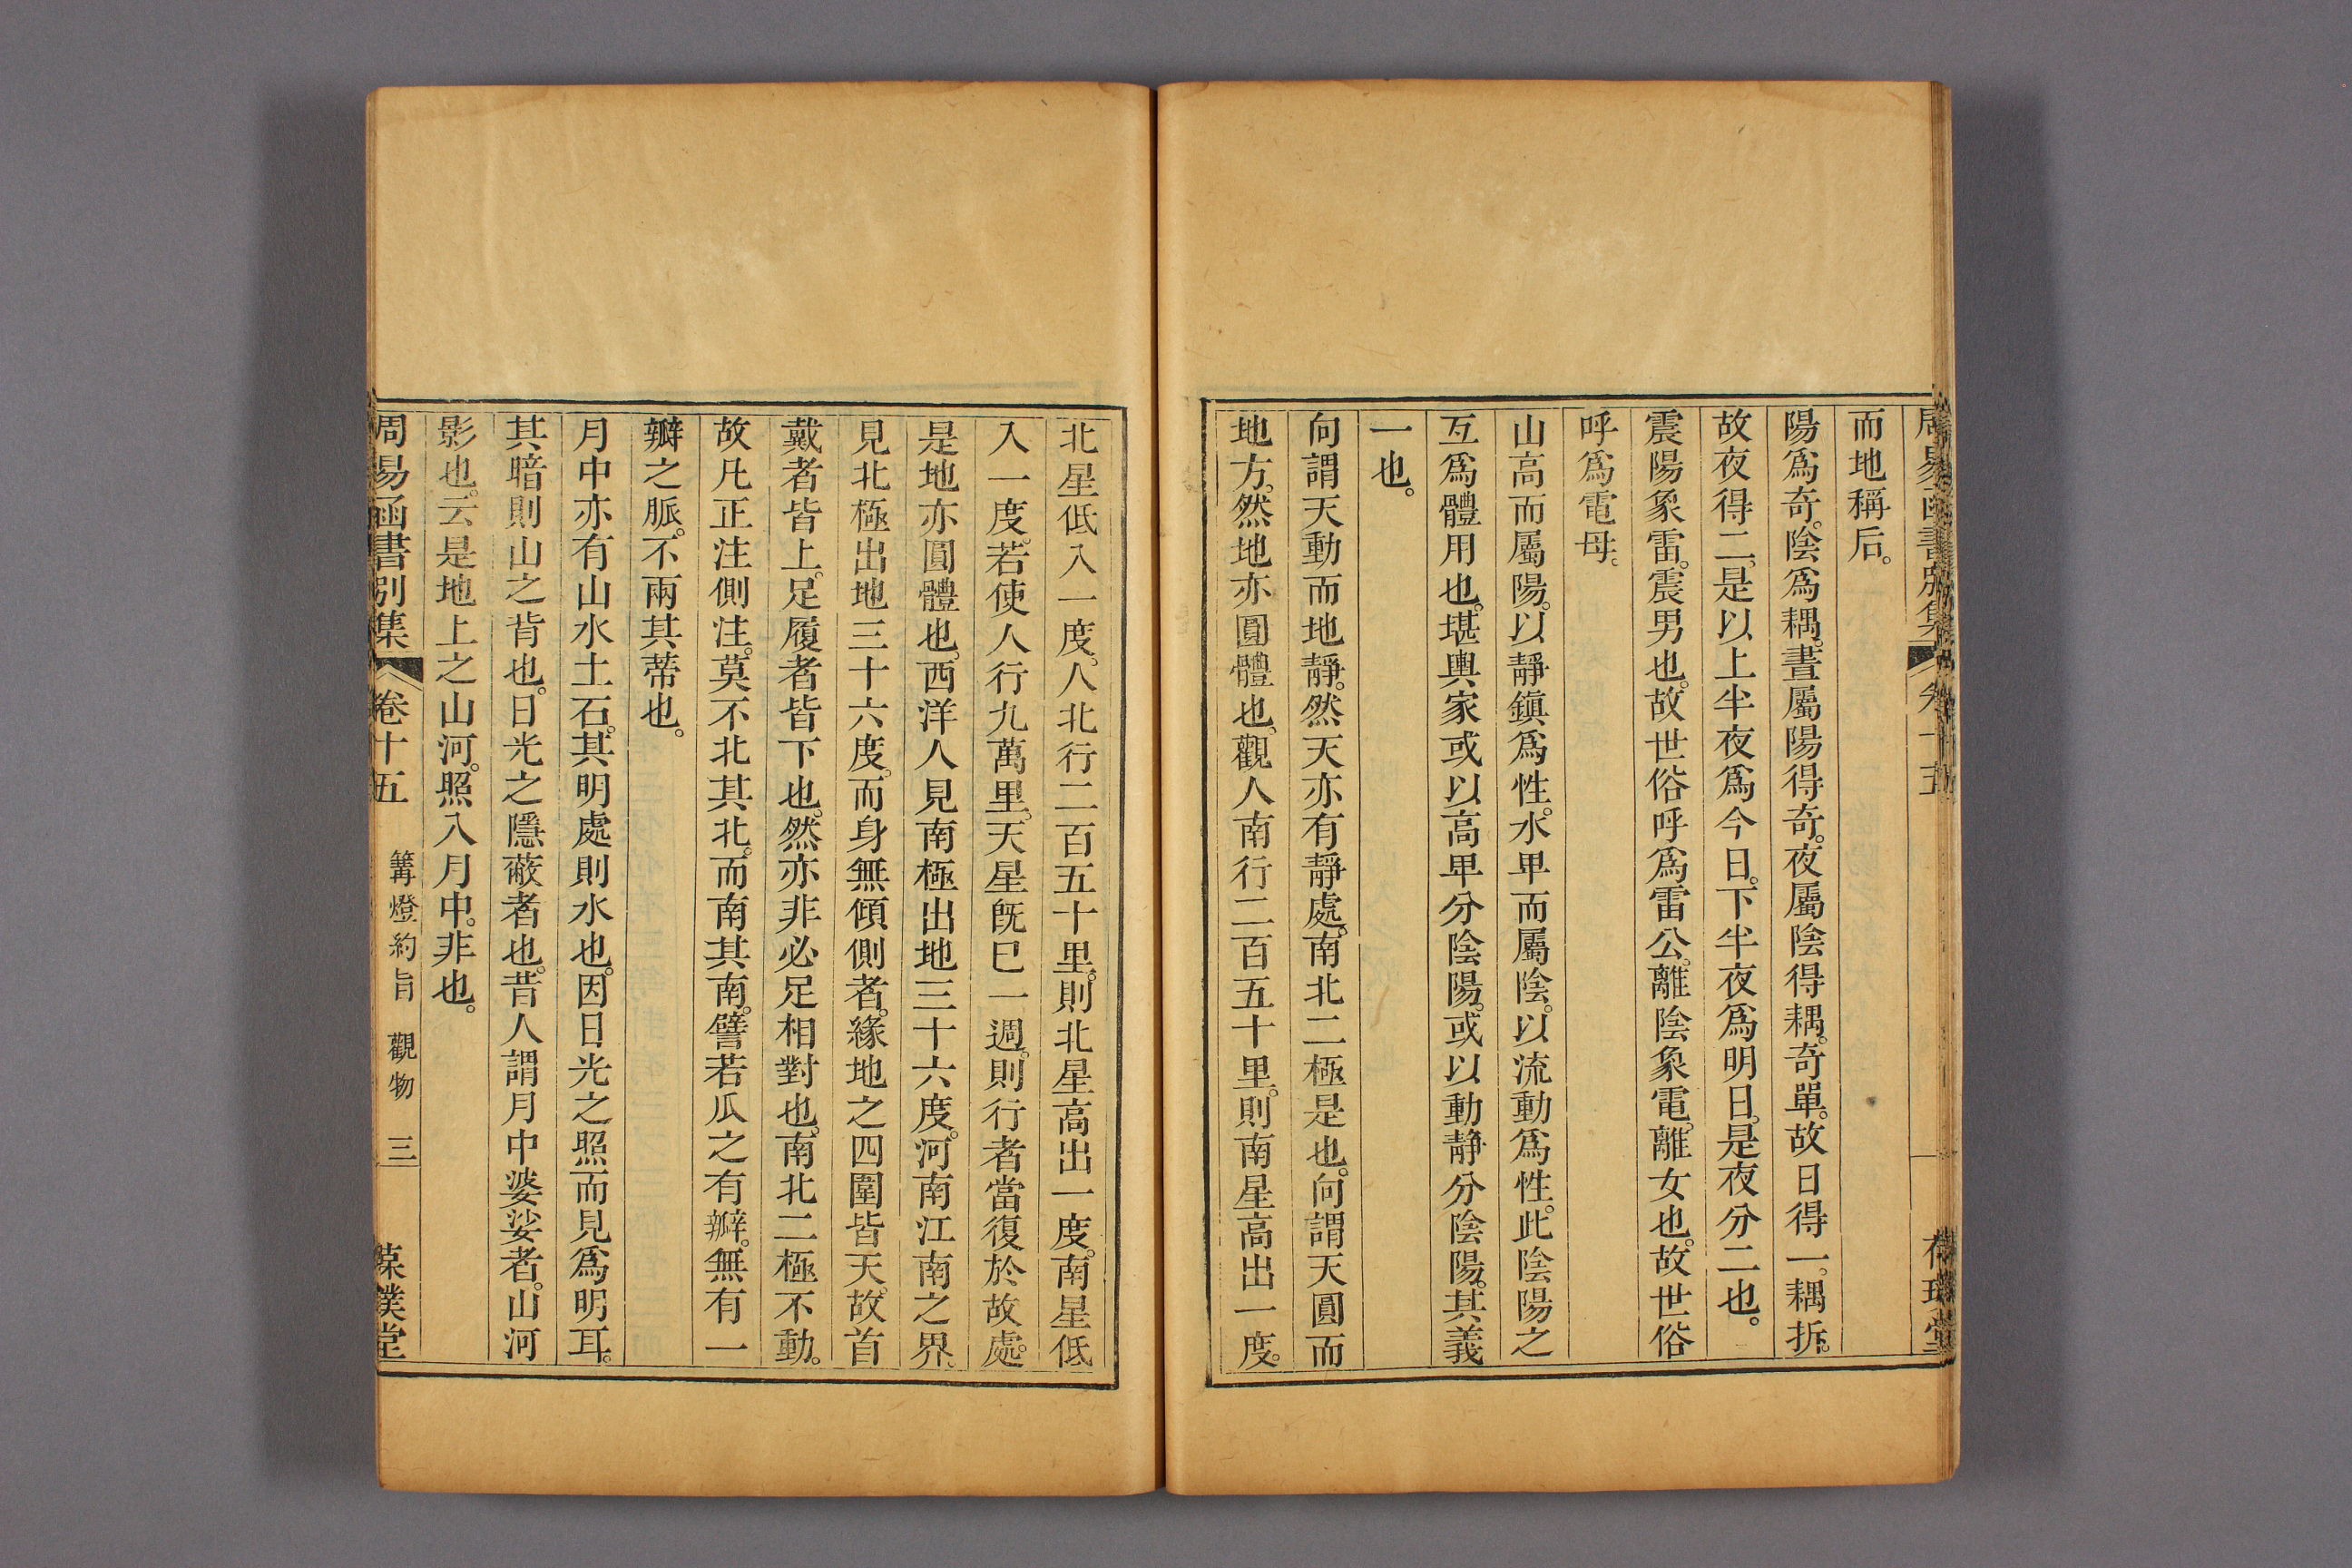 周易函書別集 卷十五
而地稱后。
陽爲奇。陰爲耦。晝屬陽得奇。夜屬陰得耦。奇單。故日得一。耦拆。
故夜得二。是以上半夜爲今日。下半夜爲明日。是夜分二也。
震陽象雷。震男也。故世俗呼爲雷公。離陰象電。離女也。故世俗
呼爲電母。
山高而屬陽。以靜鎭爲性。水卑而屬陰。以流動爲性。此陰陽之
互爲體用也。堪輿家或以高卑分陰陽。或以動靜分陰陽。其義
一也。
向謂天動而地靜。然天亦有靜處。南北二極是也。向謂天圓而
地方。然地亦圓體也。觀人南行二百五十里。則南星高出一度。
北星低入一度。人北行二百五十里。則北星高出一度。南星低
入一度。若使人行九萬里。天星旣巳一週。則行者當復於故處。
是地亦圓體也。西洋人見南極出地三十六度。河南江南之界。
見北極出地三十六度。而身無傾側者。緣地之四圍皆天。故首
戴者皆上。足履者皆下也。然亦非必足相對也。南北二極不動。
故凡正注側注。莫不北其北。而南其南。譬若瓜之有瓣。無有一
瓣之脈。不兩其蒂也。
月中亦有山水土石。其明處則水也。因日光之照而見爲明耳。
其暗則山之背也。日光之隱蔽者也。昔人謂月中婆娑者。山河
影也。云是地上之山河。照入月中。非也。
周易函書別集 卷十五 篝燈約旨 觀物 三 葆璞堂